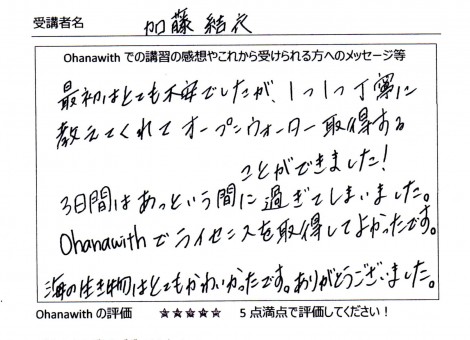 受講者名 加藤 結衣
Ohanawith での講習の感想やこれから受けられる方へのメッセージ等
最初はとても不安でしたが、1つ1つ丁寧に
教えてくれてオープンウォーター取得する
ことができました!
3日間はあっという間に過ぎてしまいました。
Ohanawithでライセンスを取得してよかったです。
海の生き物はとてもかわいかったです。ありがとうございました。
Ohanawith の評価 ☆☆☆☆☆ 5点満点で評価してください!